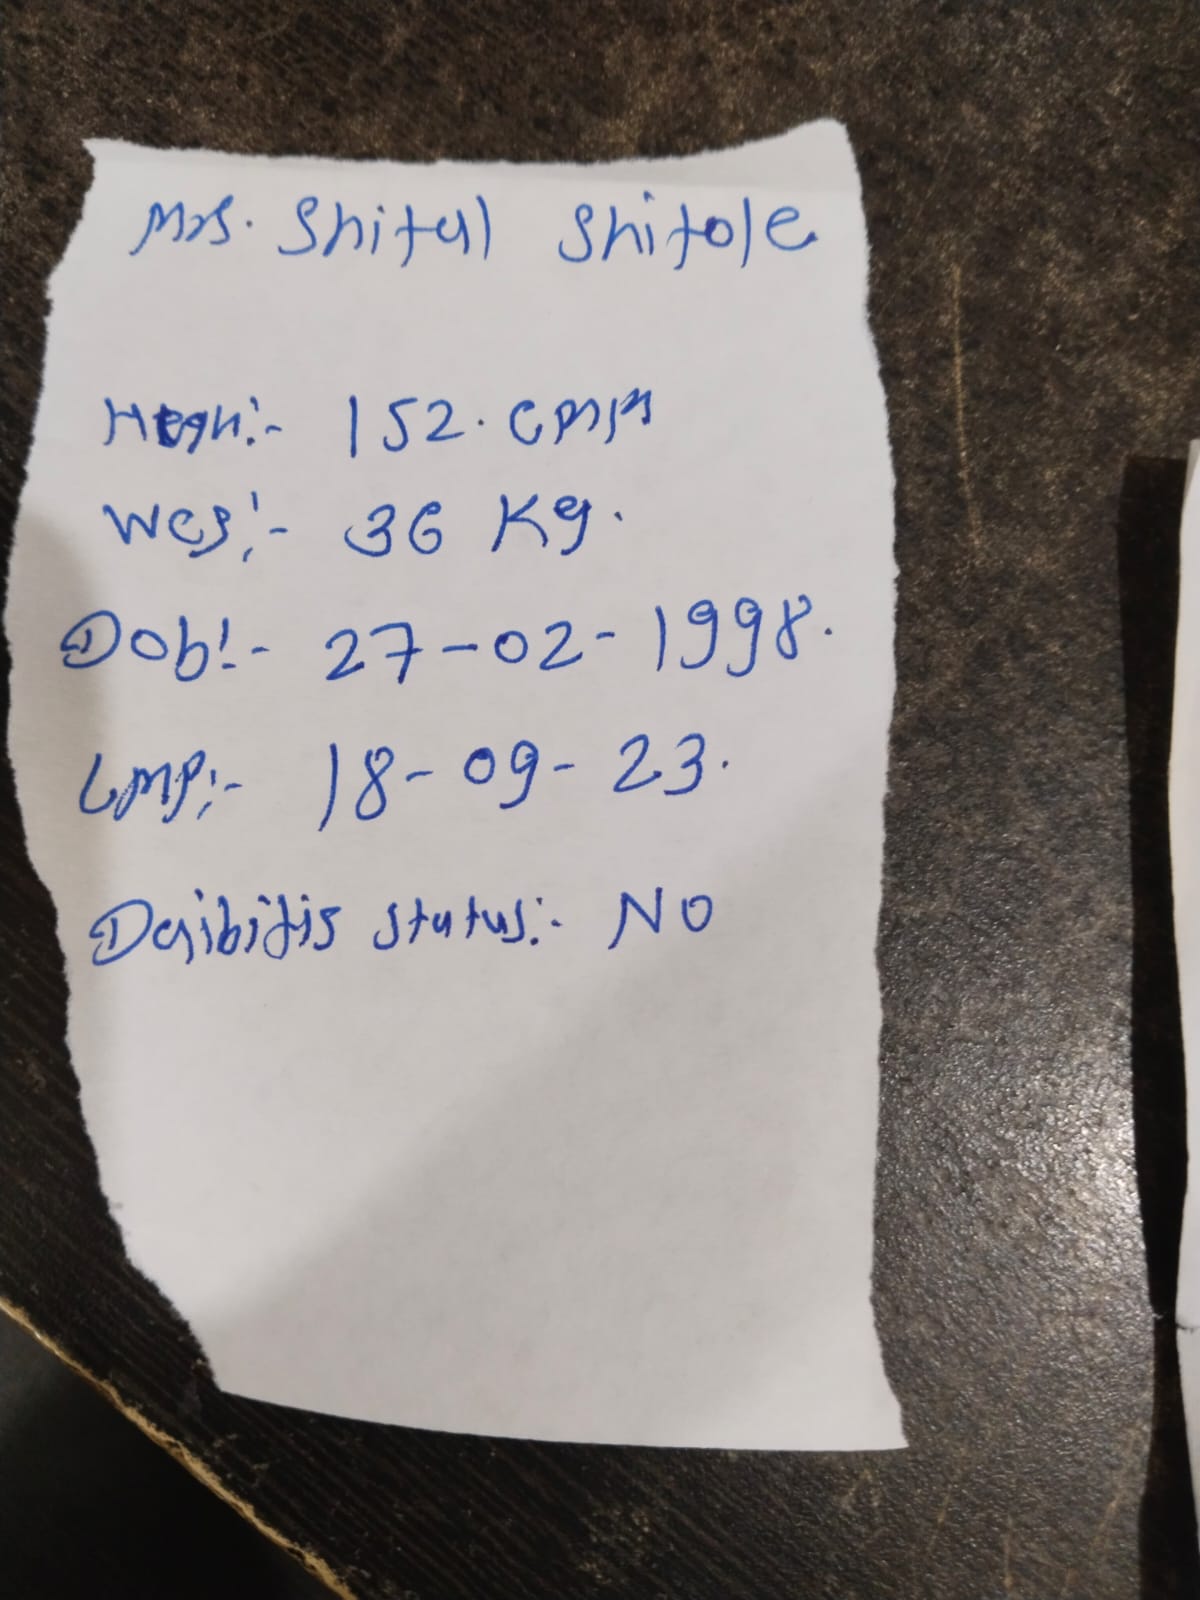 Mrs. Shital Shitole
Hegh:- 152. cmm
Weg:- 36 Kg.
Dob:- 27-02-1998.
LMP:- 18-09-23.
Daibitis status:- NO